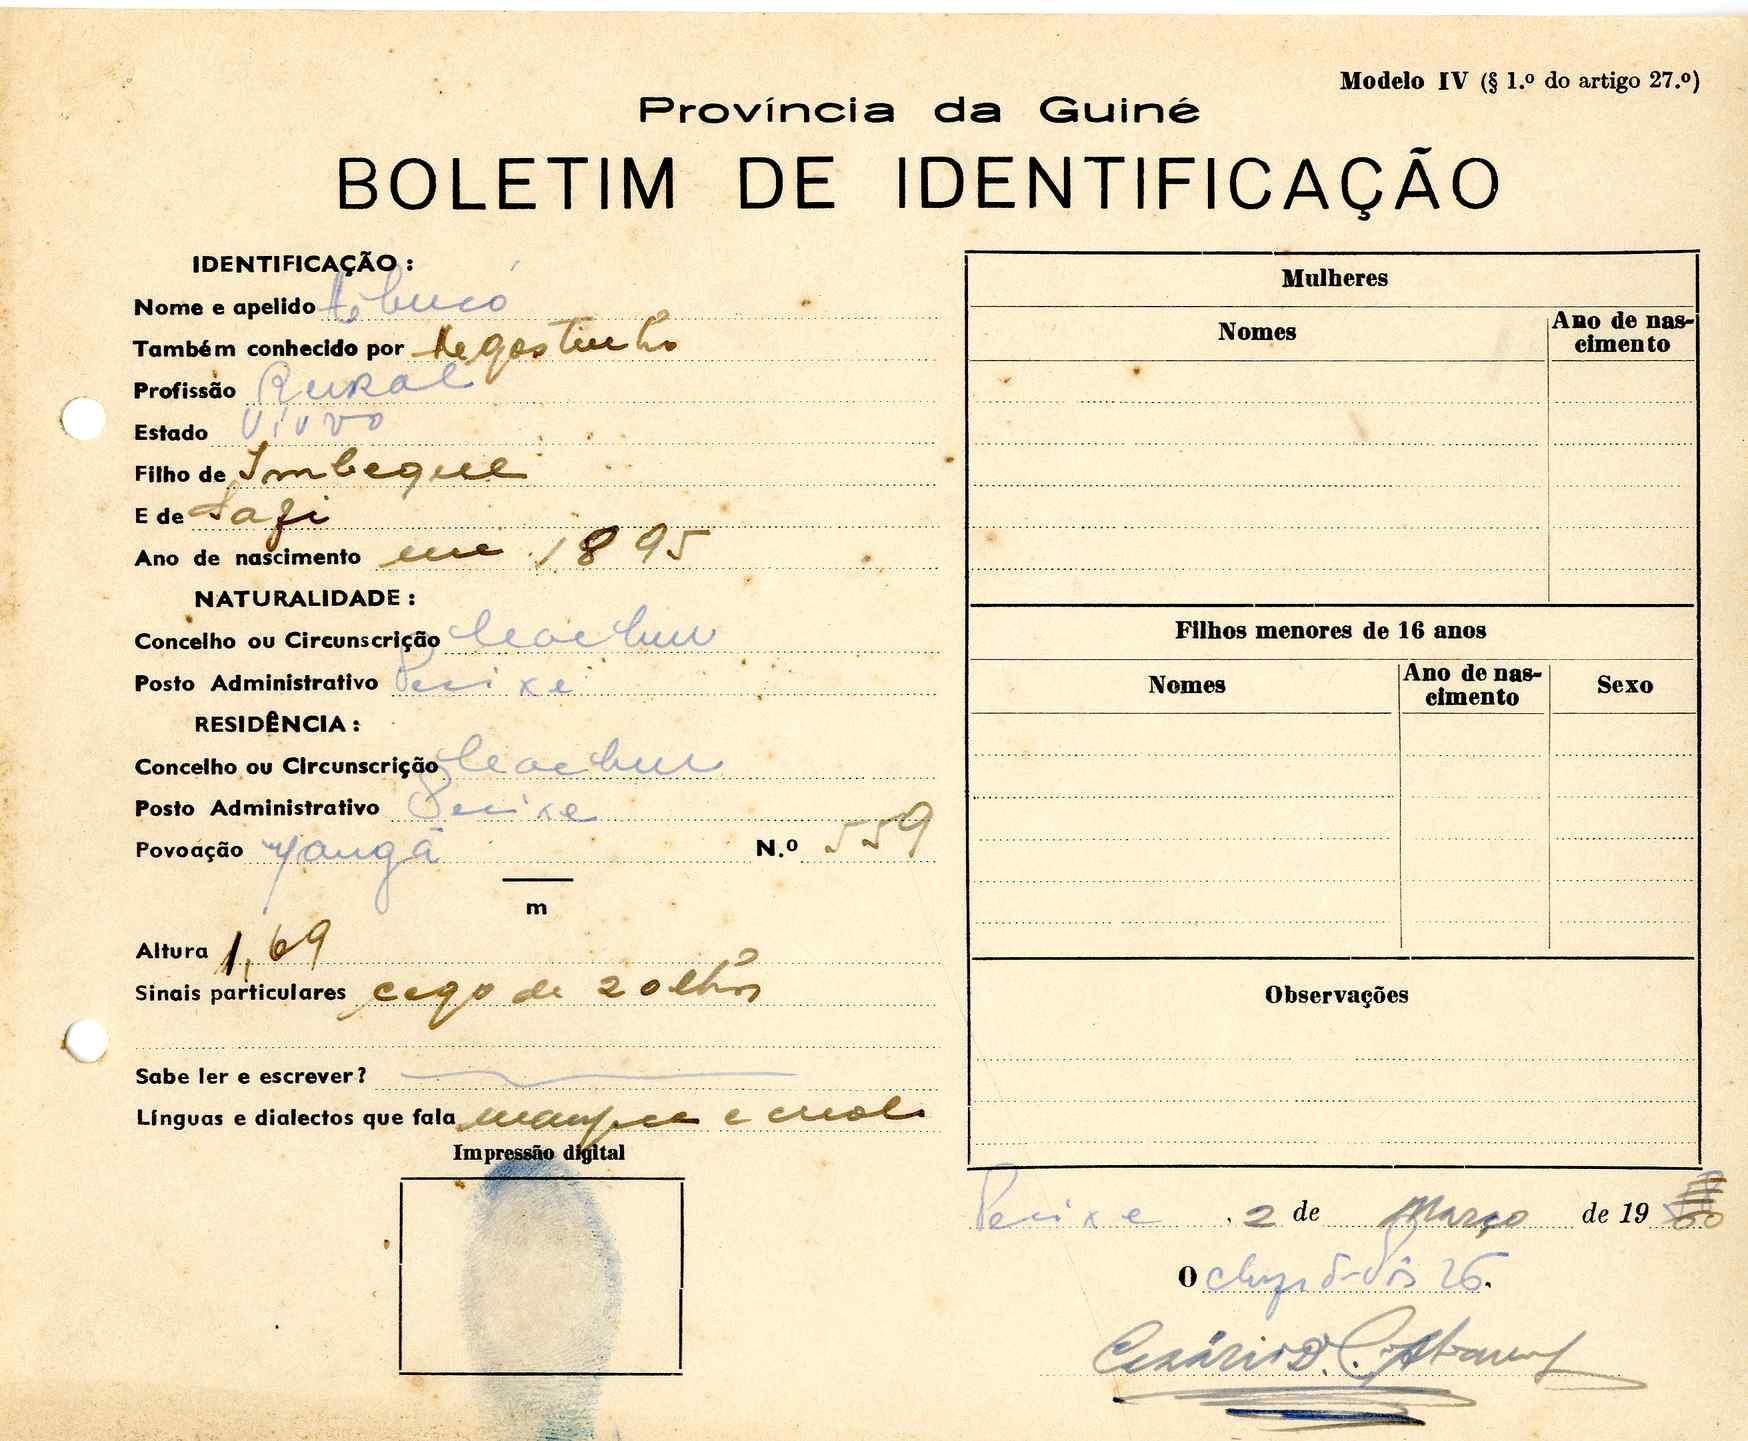 Modelo IV (§ 1.º do artigo 27.º)
Província da Guiné
BOLETIM DE IDENTIFICAÇÃO
IDENTIFICAÇÃO :
Nome e apelido
Também conhecido por Agostinho
Profissão Rural
Estado Viuvo
Filho de Imbeque
E de Safi
Ano de nascimento em 1895
NATURALIDADE :
Concelho ou Circunscrição Cacheu
Posto Administrativo Pecixe
RESIDÊNCIA :
Concelho ou Circunscrição Cacheu
Posto Administrativo Pecixe
Povoação N.º 559
m
Altura 1,69
Sinais particulares cego de 2 olhos
Sabe ler e escrever?
Línguas e dialectos que fala e
Impressão digital
Mulheres
Nomes
Ano de nascimento
Filhos menores de 16 anos
Nomes
Ano de nascimento
Sexo
Observações
Pecixe, 2 de Março de 1960
O
Cesário D.